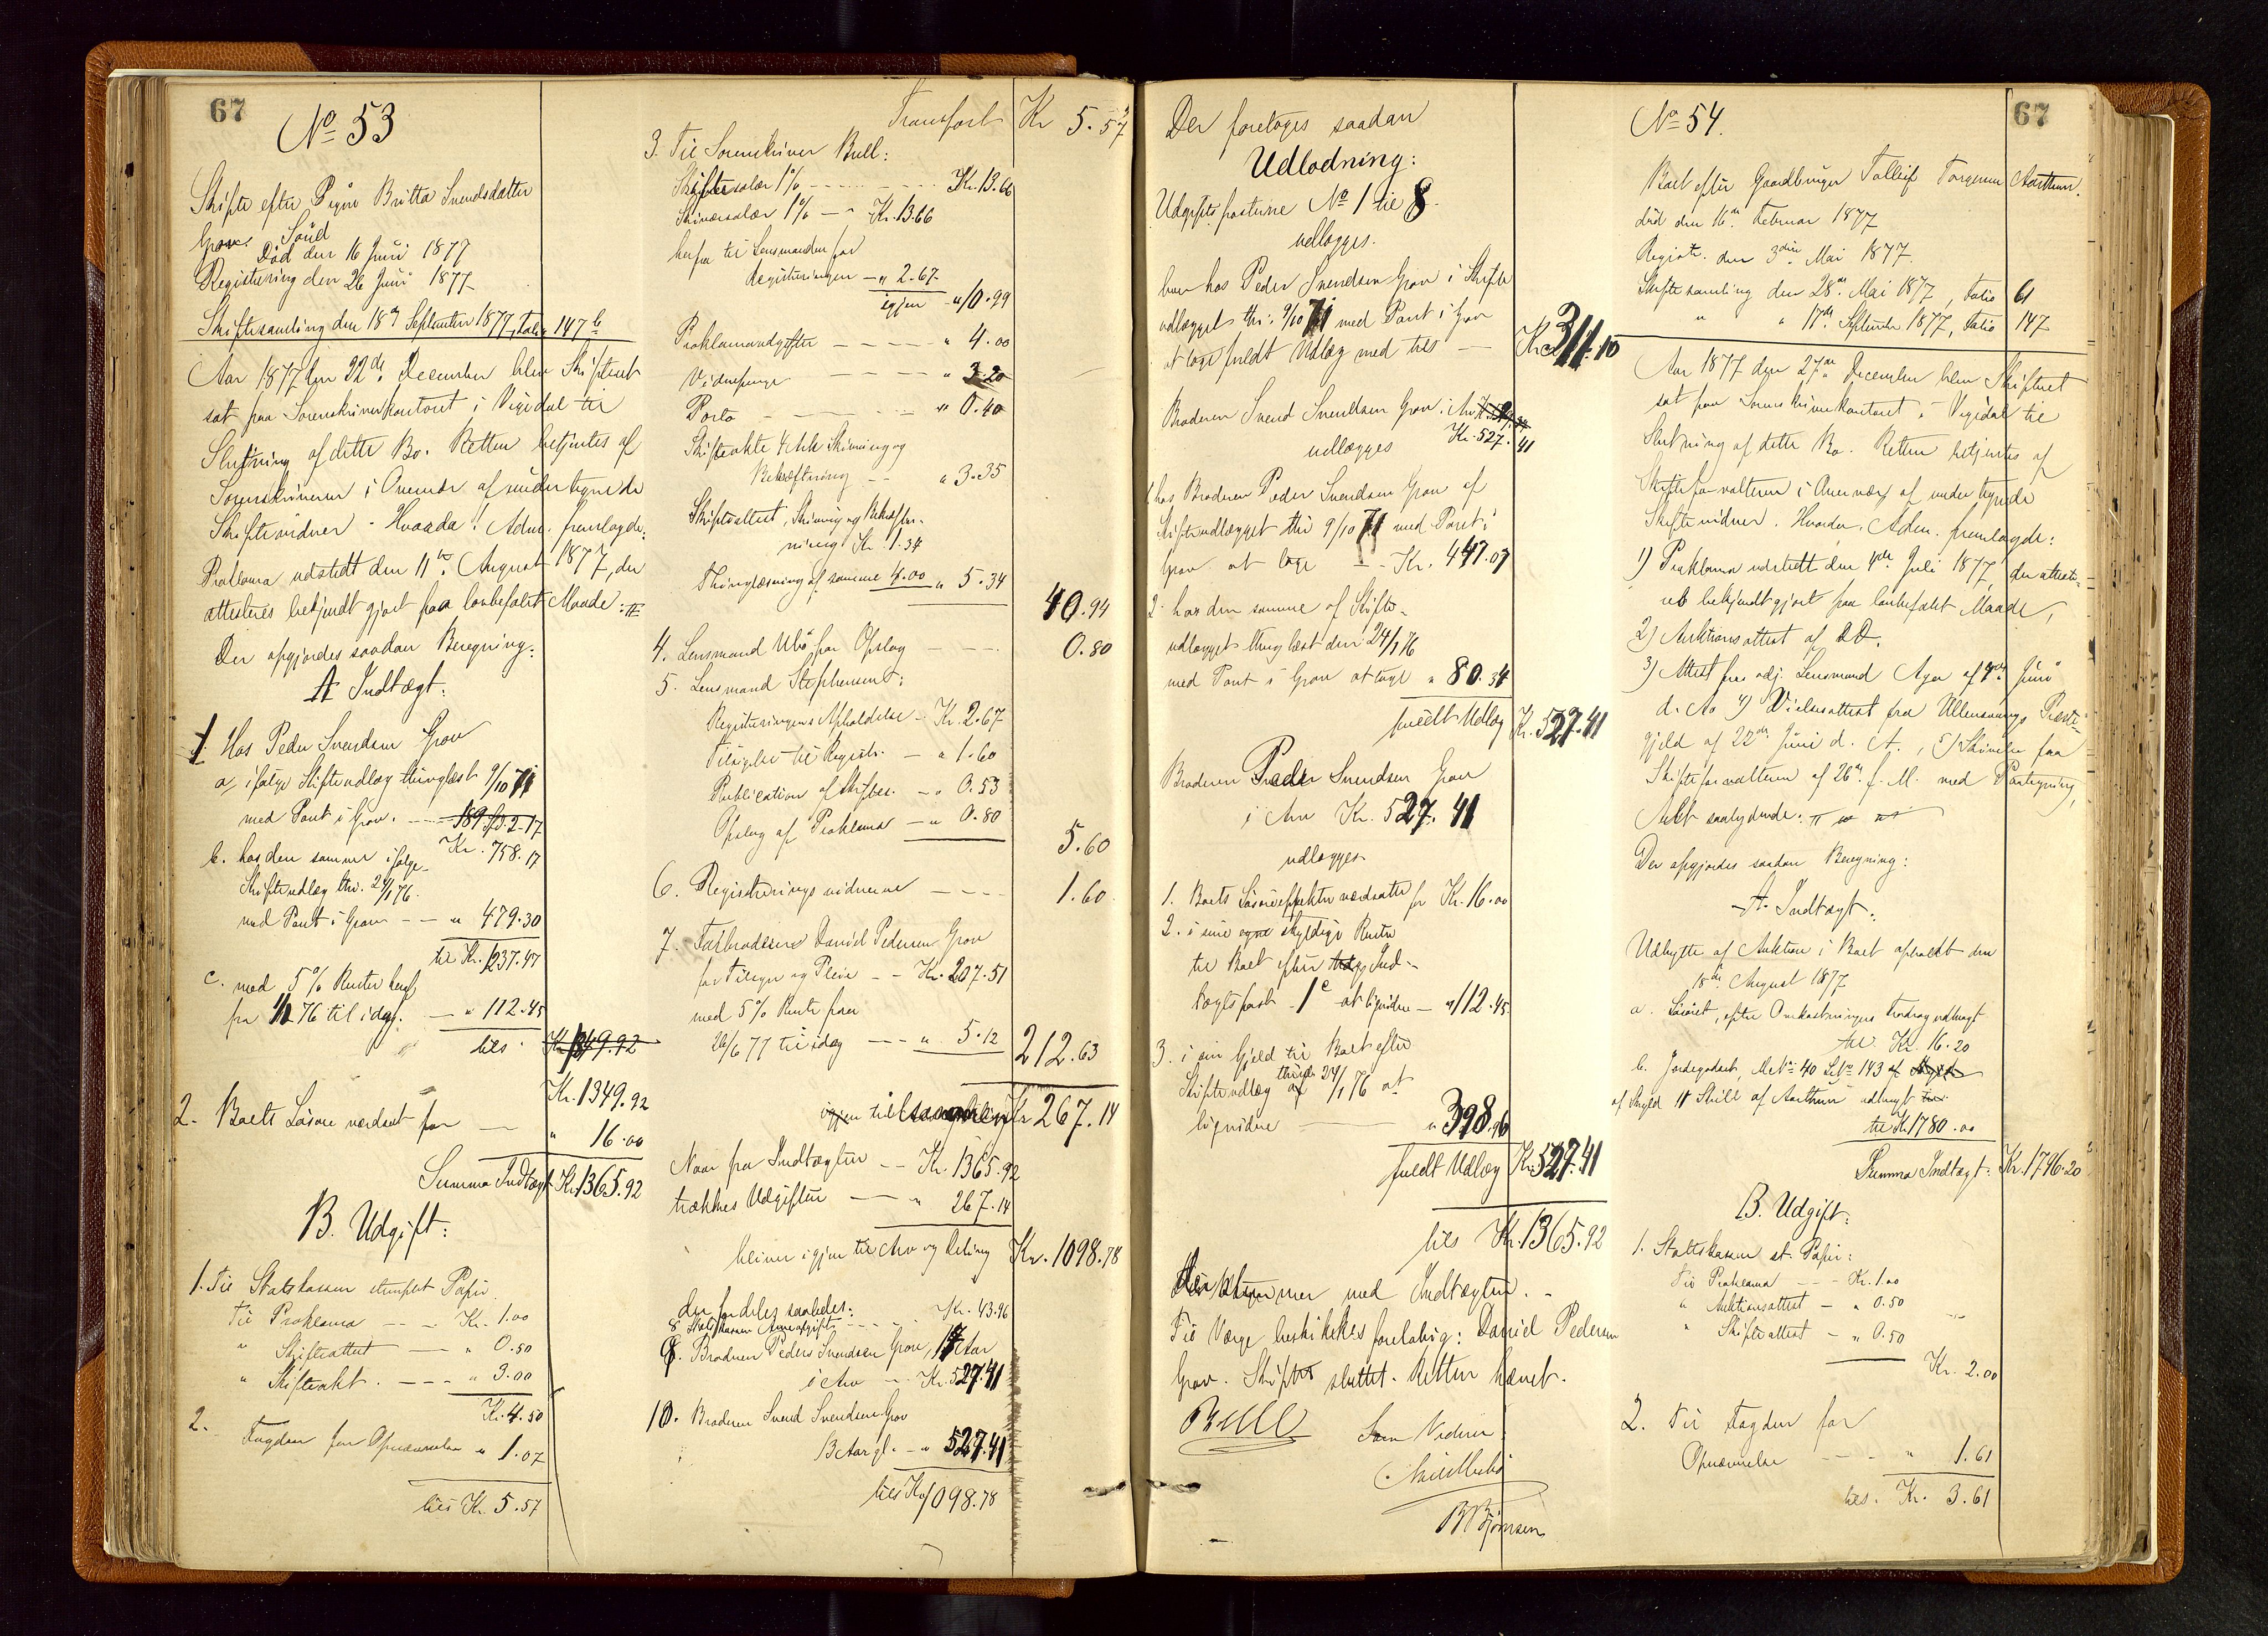 67
No 53
Skifte efter Pigen Britta Svendsdatter
Grov. Sөid
Død den 16 Juni 1877
Registrering den 26 Juni 1877
Skiftesamling den 18de September 1877, Folio 147 b
Aar 1877 den 22de December blev Skifteret
sat paa Sorenskriverkontoret i Vigedal til
Slutning af dette Bo. Retten betjentes af
Sorenskriveren i Overvær af undertegnede
Skiftevidner. Hvorda! Adm. fremlagde:
Proklama udstedt den 11te August 1877, der
attesteres bekjendtgjort paa lovbefalet Maade:
Der opgjordes saadan Beregning:
A Indtægt:
1. Hos Peder Svendsen Grov
a, ifølge Skifteudlæg thinglæst 9/10 71
med Pant i Grov. 189 Spd. 2-17
Kr. 758.17
b. hos den samme ifølge
Skifteudlæg thi. 24/1 76.
med Pant i Grov — „ 479.30
til Kr. 1237.47
c. med 5% Renter heraf
fra 76 til idag. — „ 112.45
tils. Kr. 1349.92
Kr. 1349.92
2. Boets Løsøre værdsat for — „ 16.00
Summa Indtægt Kr. 1365.92
B. Udgift:
1. Til Statskassen stemplet Papir.
Til Proklama — Kr. 1.00
„ Skifteattest — „ 0.50
„ Skifteakt. — „ 3.00
Kr. 4.50
2. Fogden for Opnævnelse „ 1.07
tils Kr. 5.57
Transport Kr 5.57
3. Til Sorenskriver Bull:
Skiftesalær 1% — Kr. 13.66
Skriversalær 1% — Kr. 13.66
herfra til Lensmanden for
Registreringen — „ 2.67
igjen „ 10.99
Proklamaudgifter — „ 4.00
Vidnepenge — „ 3.20
Porto — „ 0.40
Skifteakte 4 Ark Skrivning og
Bekræftning — „ 3.35
Skifteattest, Skrivning og Bekræft-
ning Kr. 1.34
Thinglæsning af samme 4.00 „ 5.34
40.94
4. Lensmand Ubø for Opslag — 0.80
5. Lensmand Stephensens:
Registreringens Afholdelse — Kr. 2.67
Tilsigelse til Registr. — „ 1.60
Publication af Skiftes. — „ 0.53
Opslag af Proklama — „ 0.80
5.60
6. Registreringsvidnerne — 1.60
7. Farbroderen Daniel Pedersen Grov
for Tilsyn og Pleie — Kr. 207.51
med 5% Rente fra
26/6 77 til idag — „ 5.12
212.63
Kr 267.14
Naar fra Indtægten — Kr. 1365.92
trækkes Udgiften — „ 267.14
bliver igjen til Arv og Deling Kr. 1098.78
der fordeles saaledes:
8 Statskassen Arveafgift — Kr. 43.96
9. Broderen Peder Svendsen Grov, 17 Aar
i Arv — Kr. 527.41
10. Broderen Svend Svendsen Grov
Aar gl. — „ 527.41
tils Kr. 1098.78
Der foretoges saadan
Udlodning:
Udgiftsposterne No 1 til 8.
udlægges.
hver hos Peder Svendsen Grov i Skifte
udlægget thi. 9/10 71 med Pant i Grov
at tage fuldt Udlæg med tils — Kr. 311.10
Broderen Svend Svendsen Grov i Arv
Kr. 527.41
udlægges
1. hos Broderen Peder Svendsen Grov af
Skifteudlægget thi 9/10 71 med Pant i
Grov at tage — Kr. 447.07
2. hos den samme af Skifte-
udlægget thinglæst den 24/1 76
med Pant i Grov at tage „ 80.34
fuldt Udlæg Kr. 527.41
Broderen Peder Svendsen Grov
i Arv Kr. 527.41
udlægges
1. Boets Løsøreeffekter værdsatte for Kr. 16.00
2. i sine egne skyldige Renter
til Boet efter Ind-
tægtspost 1c at ligvidere — „ 112.45
3. i sin Gjeld til Boet efter
Skifteudlæg thingl. 24/1 76 at
ligvidere — „ 398.96
fuldt Udlæg Kr. 527.41
tils Kr. 1365.92
der stemmer med Indtægten.
Til Værge beskikkes foreløbig: Daniel Pedersen
Grov. Skiftet sluttet. Retten hævet.
Bull
Som Vidner:
B Bjørnsen
67
No 54.
Boet efter Gaardbruger Tolleif Torgersen Aarthun.
død den 16de Februar 1877
Registr. den 3die Mai 1877.
Skiftesamling den 28de Mai 1877, Folio 61
„ „ 17de September 1877, Folio 147
Aar 1877 den 27de December blev Skifteret
sat paa Sorenskriverkontoret i Vigedal til
Slutning af dette Bo. Retten betjentes af
Skifteforvalteren i Overvær af undertegnede
Skiftevidner. Hvorda. Adm. fremlagde:
1) Proklama udstedt den 4de Juli 1877, der atteste-
res bekjendtgjort paa lovbefalet Maade,
2) Auktionsattest af D.D.
3) Attest fra adj. Lensmand Aga af 7de Juni
d. A. 4) Vielsesattest fra Ullensvangs Præste-
gjeld af 22de Juni d. A., 5) Skrivelse fra
Skifteforvalteren af 26de f. M. med Paategning,
Alt saalydende:
Der opgjordes saadan Beregning:
A. Indtægt:
Udbytte af Auktion i Boet afholdt den
18de August 1877
a. Løsøret, efter Omkostningers Fradrag udbragt
til Kr. 16.20
b. Jordegodset, M.No 40 L.No 143
af Skyld Skill af Aarthun udbragt
til Kr. 1780.00
Summa Indtægt: Kr. 1796.20
B. Udgift:
1. Statskassen st. Papir:
Til Proklama — Kr. 1.00
„ Auktionsattest — „ 0.50
„ Skifteattest — „ 0.50
Kr. 2.00
2. Til Fogden for
Opnævnelse — „ 1.61
tils. Kr. 3.61